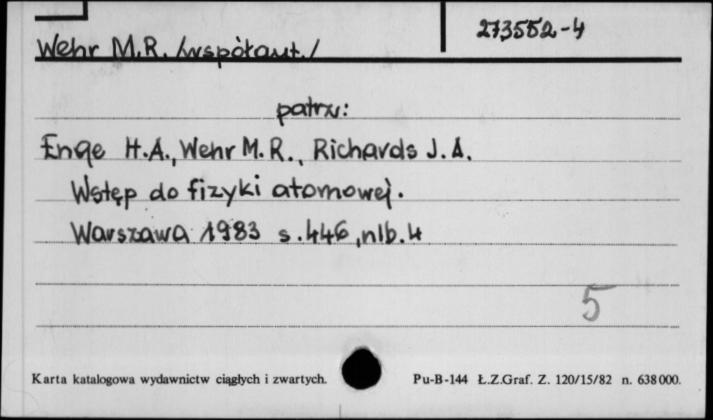 273552-4
Wehr M.R. /współaut./
patrz:
Enge H.A., Wehr M.R., Richards J.A.
Wstęp do fizyki atomowej.
Warszawa 1983 s.446, nlb.4
5
Karta katalogowa wydawnictw ciągłych i zwartych. Pu-B-144 Ł.Z.Graf. Z. 120/15/82 n. 638000.